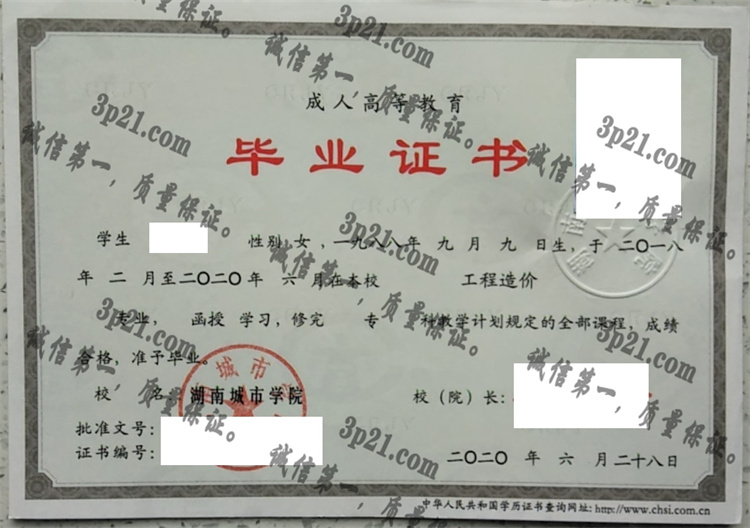 成人高等教育
毕业证书
学生 性别 女，一九八八年 九 月 九 日生，于 二〇一八
年 二 月至二〇二〇年 六 月在本校 工程造价
专业， 函授 学习，修完 专 科教学计划规定的全部课程，成绩
合格，准予毕业。
校 名：湖南城市学院 校（院）长：
批准文号：
证书编号： 二〇二〇 年 六 月二十八日
中华人民共和国学历证书查询网址：http://www.chsi.com.cn
3p21.com
诚信第一，质量保证。
3p21.com
诚信第一，质量保证。
3p21.com
诚信第一，质量保证。
3p21.com
诚信第一，质量保证。
3p21.com
诚信第一，质量保证。
3p21.com
诚信第一，质量保证。
3p21.com
诚信第一，质量保证。
3p21.com
诚信第一，质量保证。